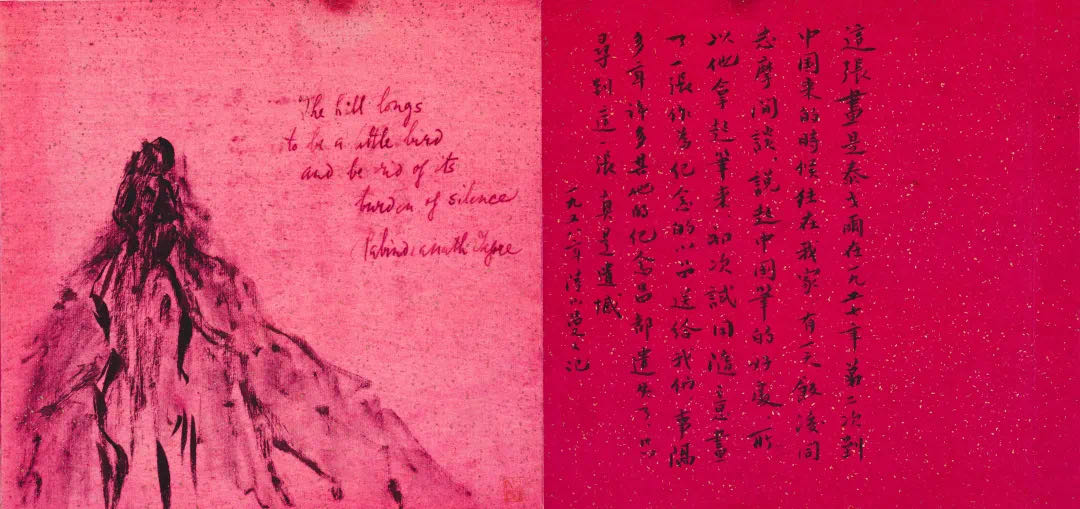 The hill longs
to be a little bird
and be rid of its
burden of silence
Rabindranath Tagore
這張畫是泰戈爾在一九二七年第二次到
中国來的時候住在我家有一天飯後同
志摩閒談說起中国筆的好處所
以他拿起筆來初次試用隨意畫
了一張作為紀念的小品送給我們事隔
多年許多其他的紀念品都遺失了只
尋到這一張真是遺憾
一九五八年陸小曼記